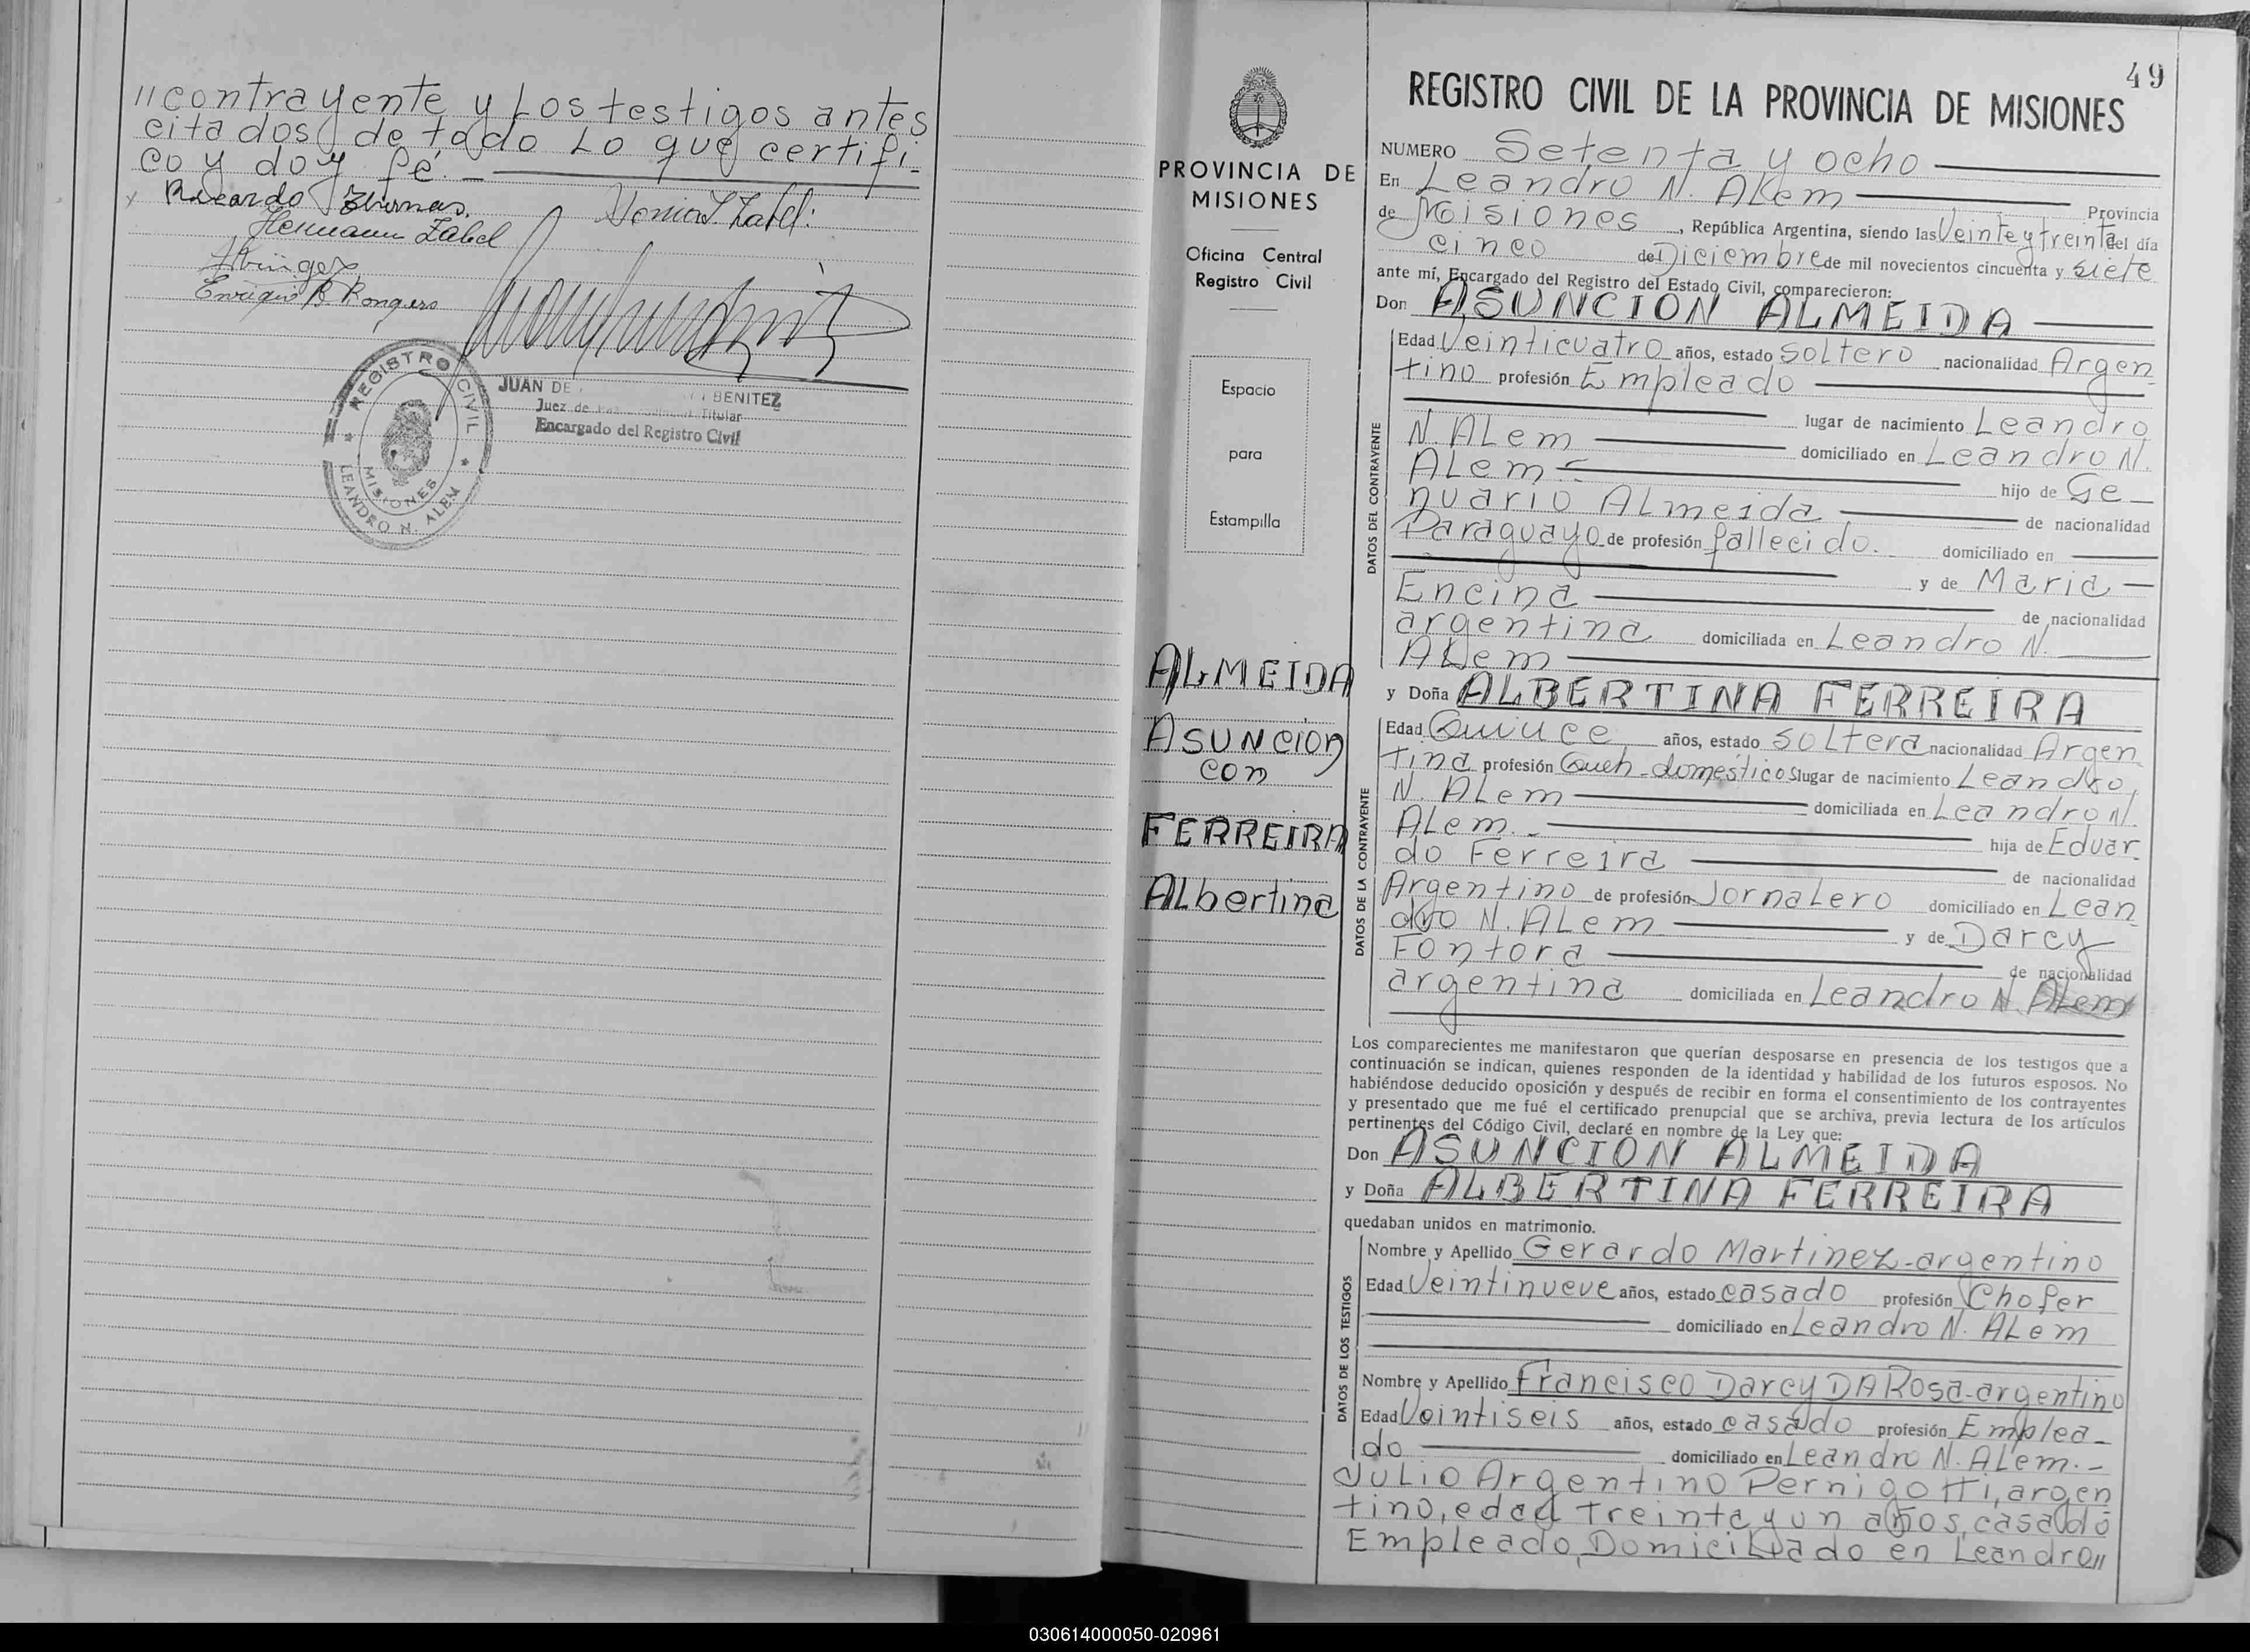 "contrayente y Los testigos antes
citados de todo Lo que certifi-
co y doy fé.-
Ricardo
Hermann Zabel
Enrique B
REGISTRO CIVIL
MISIONES
LEANDRO N. ALEM
JUAN DE BENITEZ
Juez de Titular
Encargado del Registro Civil
PROVINCIA DE
MISIONES
Oficina Central
Registro Civil
Espacio
para
Estampilla
ALMEIDA
ASUNCION
con
FERREIRA
ALbertina
49
REGISTRO CIVIL DE LA PROVINCIA DE MISIONES
NUMERO Setenta y ocho
En Leandro N. ALem Provincia
de Misiones, República Argentina, siendo las Veinte y treinta del día
cinco de Diciembre de mil novecientos cincuenta y siete
ante mí, Encargado del Registro del Estado Civil, comparecieron:
Don ASUNCION ALMEIDA
Edad Veinticuatro años, estado soltero nacionalidad Argen
tino profesión Empleado
lugar de nacimiento Leandro
N. ALem domiciliado en Leandro N.
ALem.- hijo de Ge
nuario ALmeida de nacionalidad
Paraguayo de profesión fallecido. domiciliado en
y de Maria
Encina de nacionalidad
argentina domiciliada en Leandro N.
ALem
DATOS DEL CONTRAYENTE
y Doña ALBERTINA FERREIRA
Edad Quince años, estado soltera nacionalidad Argen
tina profesión Queh-domesticos lugar de nacimiento Leandro
N. ALem domiciliada en Leandro N.
ALem.- hija de Eduar
do Ferreira de nacionalidad
Argentino de profesión Jornalero domiciliado en Lean
dro N. ALem y de Darcy
Fontora de nacionalidad
argentina domiciliada en Leandro N. ALem
DATOS DE LA CONTRAYENTE
Los comparecientes me manifestaron que querían desposarse en presencia de los testigos que a
continuación se indican, quienes responden de la identidad y habilidad de los futuros esposos. No
habiéndose deducido oposición y después de recibir en forma el consentimiento de los contrayentes
y presentado que me fué el certificado prenupcial que se archiva, previa lectura de los artículos
pertinentes del Código Civil, declaré en nombre de la Ley que:
Don ASUNCION ALMEIDA
y Doña ALBERTINA FERREIRA
quedaban unidos en matrimonio.
Nombre y Apellido Gerardo Martinez-argentino
Edad Veintinueve años, estado casado profesión Chofer
domiciliado en Leandro N. ALem
Nombre y Apellido Francisco Darcy DA Rosa-argentino
Edad Veintiseis años, estado casado profesión Emplea-
do domiciliado en Leandro N. ALem.-
DATOS DE LOS TESTIGOS
Julio Argentino Pernigotti, argen
tino, edad treinta y un años, casado
Empleado, Domiciliado en Leandro"
030614000050-020961